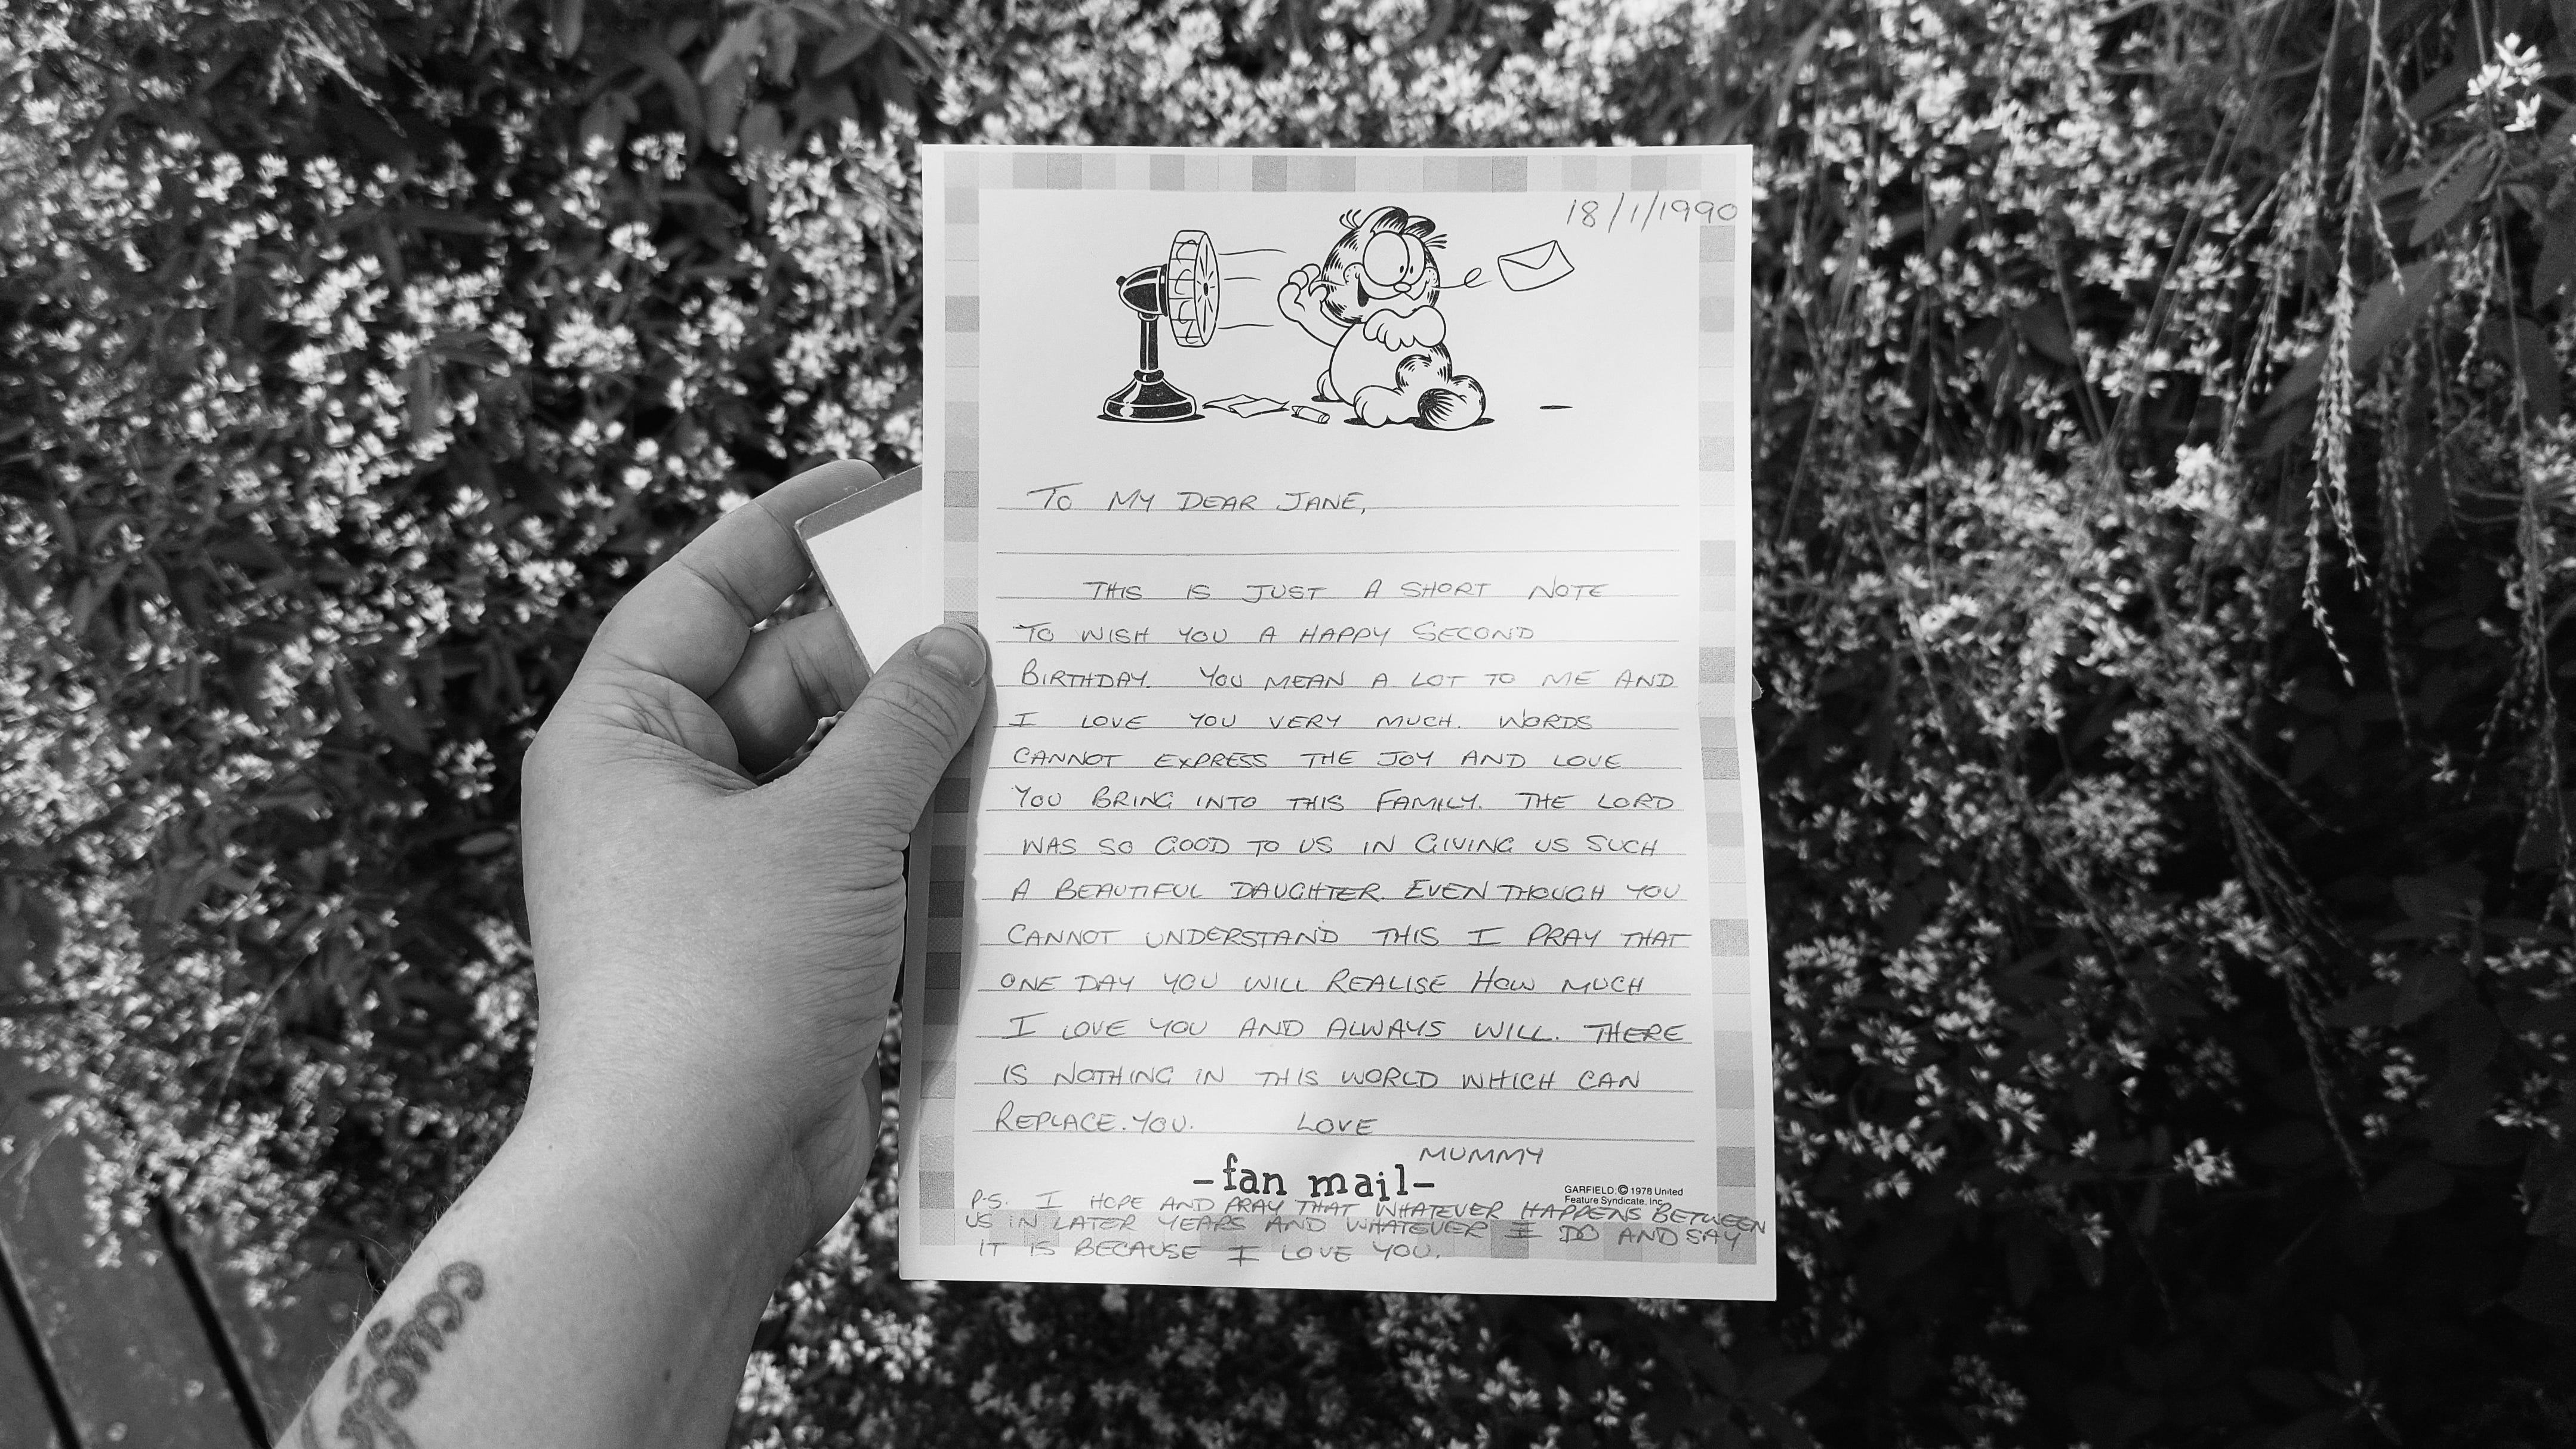 18/1/1990
TO MY DEAR JANE,
THIS IS JUST A SHORT NOTE
TO WISH YOU A HAPPY SECOND
BIRTHDAY. YOU MEAN A LOT TO ME AND
I LOVE YOU VERY MUCH. WORDS
CANNOT EXPRESS THE JOY AND LOVE
YOU BRING INTO THIS FAMILY. THE LORD
WAS SO GOOD TO US IN GIVING US SUCH
A BEAUTIFUL DAUGHTER. EVEN THOUGH YOU
CANNOT UNDERSTAND THIS I PRAY THAT
ONE DAY YOU WILL REALISE HOW MUCH
I LOVE YOU AND ALWAYS WILL. THERE
IS NOTHING IN THIS WORLD WHICH CAN
REPLACE.YOU. LOVE
MUMMY
-fan mail-
GARFIELD: © 1978 United
Feature Syndicate, Inc.
P.S. I HOPE AND PRAY THAT WHATEVER HAPPENS BETWEEN
US IN LATER YEARS AND WHATEVER I DO AND SAY
IT IS BECAUSE I LOVE YOU.